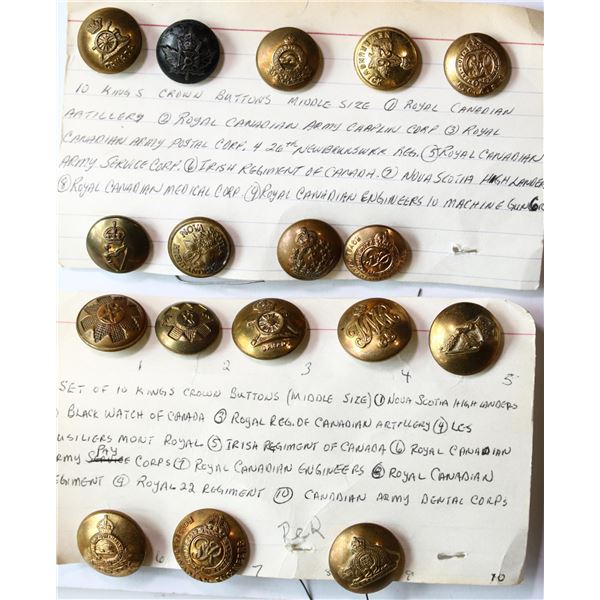 10 KINGS CROWN BUTTONS MIDDLE SIZE ① ROYAL CANADIAN
ARTILLERY ② ROYAL CANADIAN ARMY CHAPLIN CORP ③ ROYAL
CANADIAN ARMY POSTAL CORP. 4 26TH NEWBRUNSWKR REG. ⑤ ROYAL CANADIAN
ARMY SERVICE CORP. ⑥ IRISH REGIMENT OF CANADA. ⑦ NOVA SCOTIA HIGHLANDERS
⑧ ROYAL CANADIAN MEDICAL CORP. ⑨ ROYAL CANADIAN ENGINEERS 10 MACHINE GUN
1 2 3 4 5
SET OF 10 KINGS CROWN BUTTONS (MIDDLE SIZE) ① NOVA SCOTIA HIGHLANDERS
BLACK WATCH OF CANADA ③ ROYAL REG. OF CANADIAN ARTILLERY ④ LES
USILIERS MONT ROYAL ⑤ IRISH REGIMENT OF CANADA ⑥ ROYAL CANADIAN
PAY
RMY CORPS ⑦ ROYAL CANADIAN ENGINEERS ⑧ ROYAL CANADIAN
EGIMENT ⑨ ROYAL 22 REGIMENT ⑩ CANADIAN ARMY DENTAL CORPS
6 7 9 10